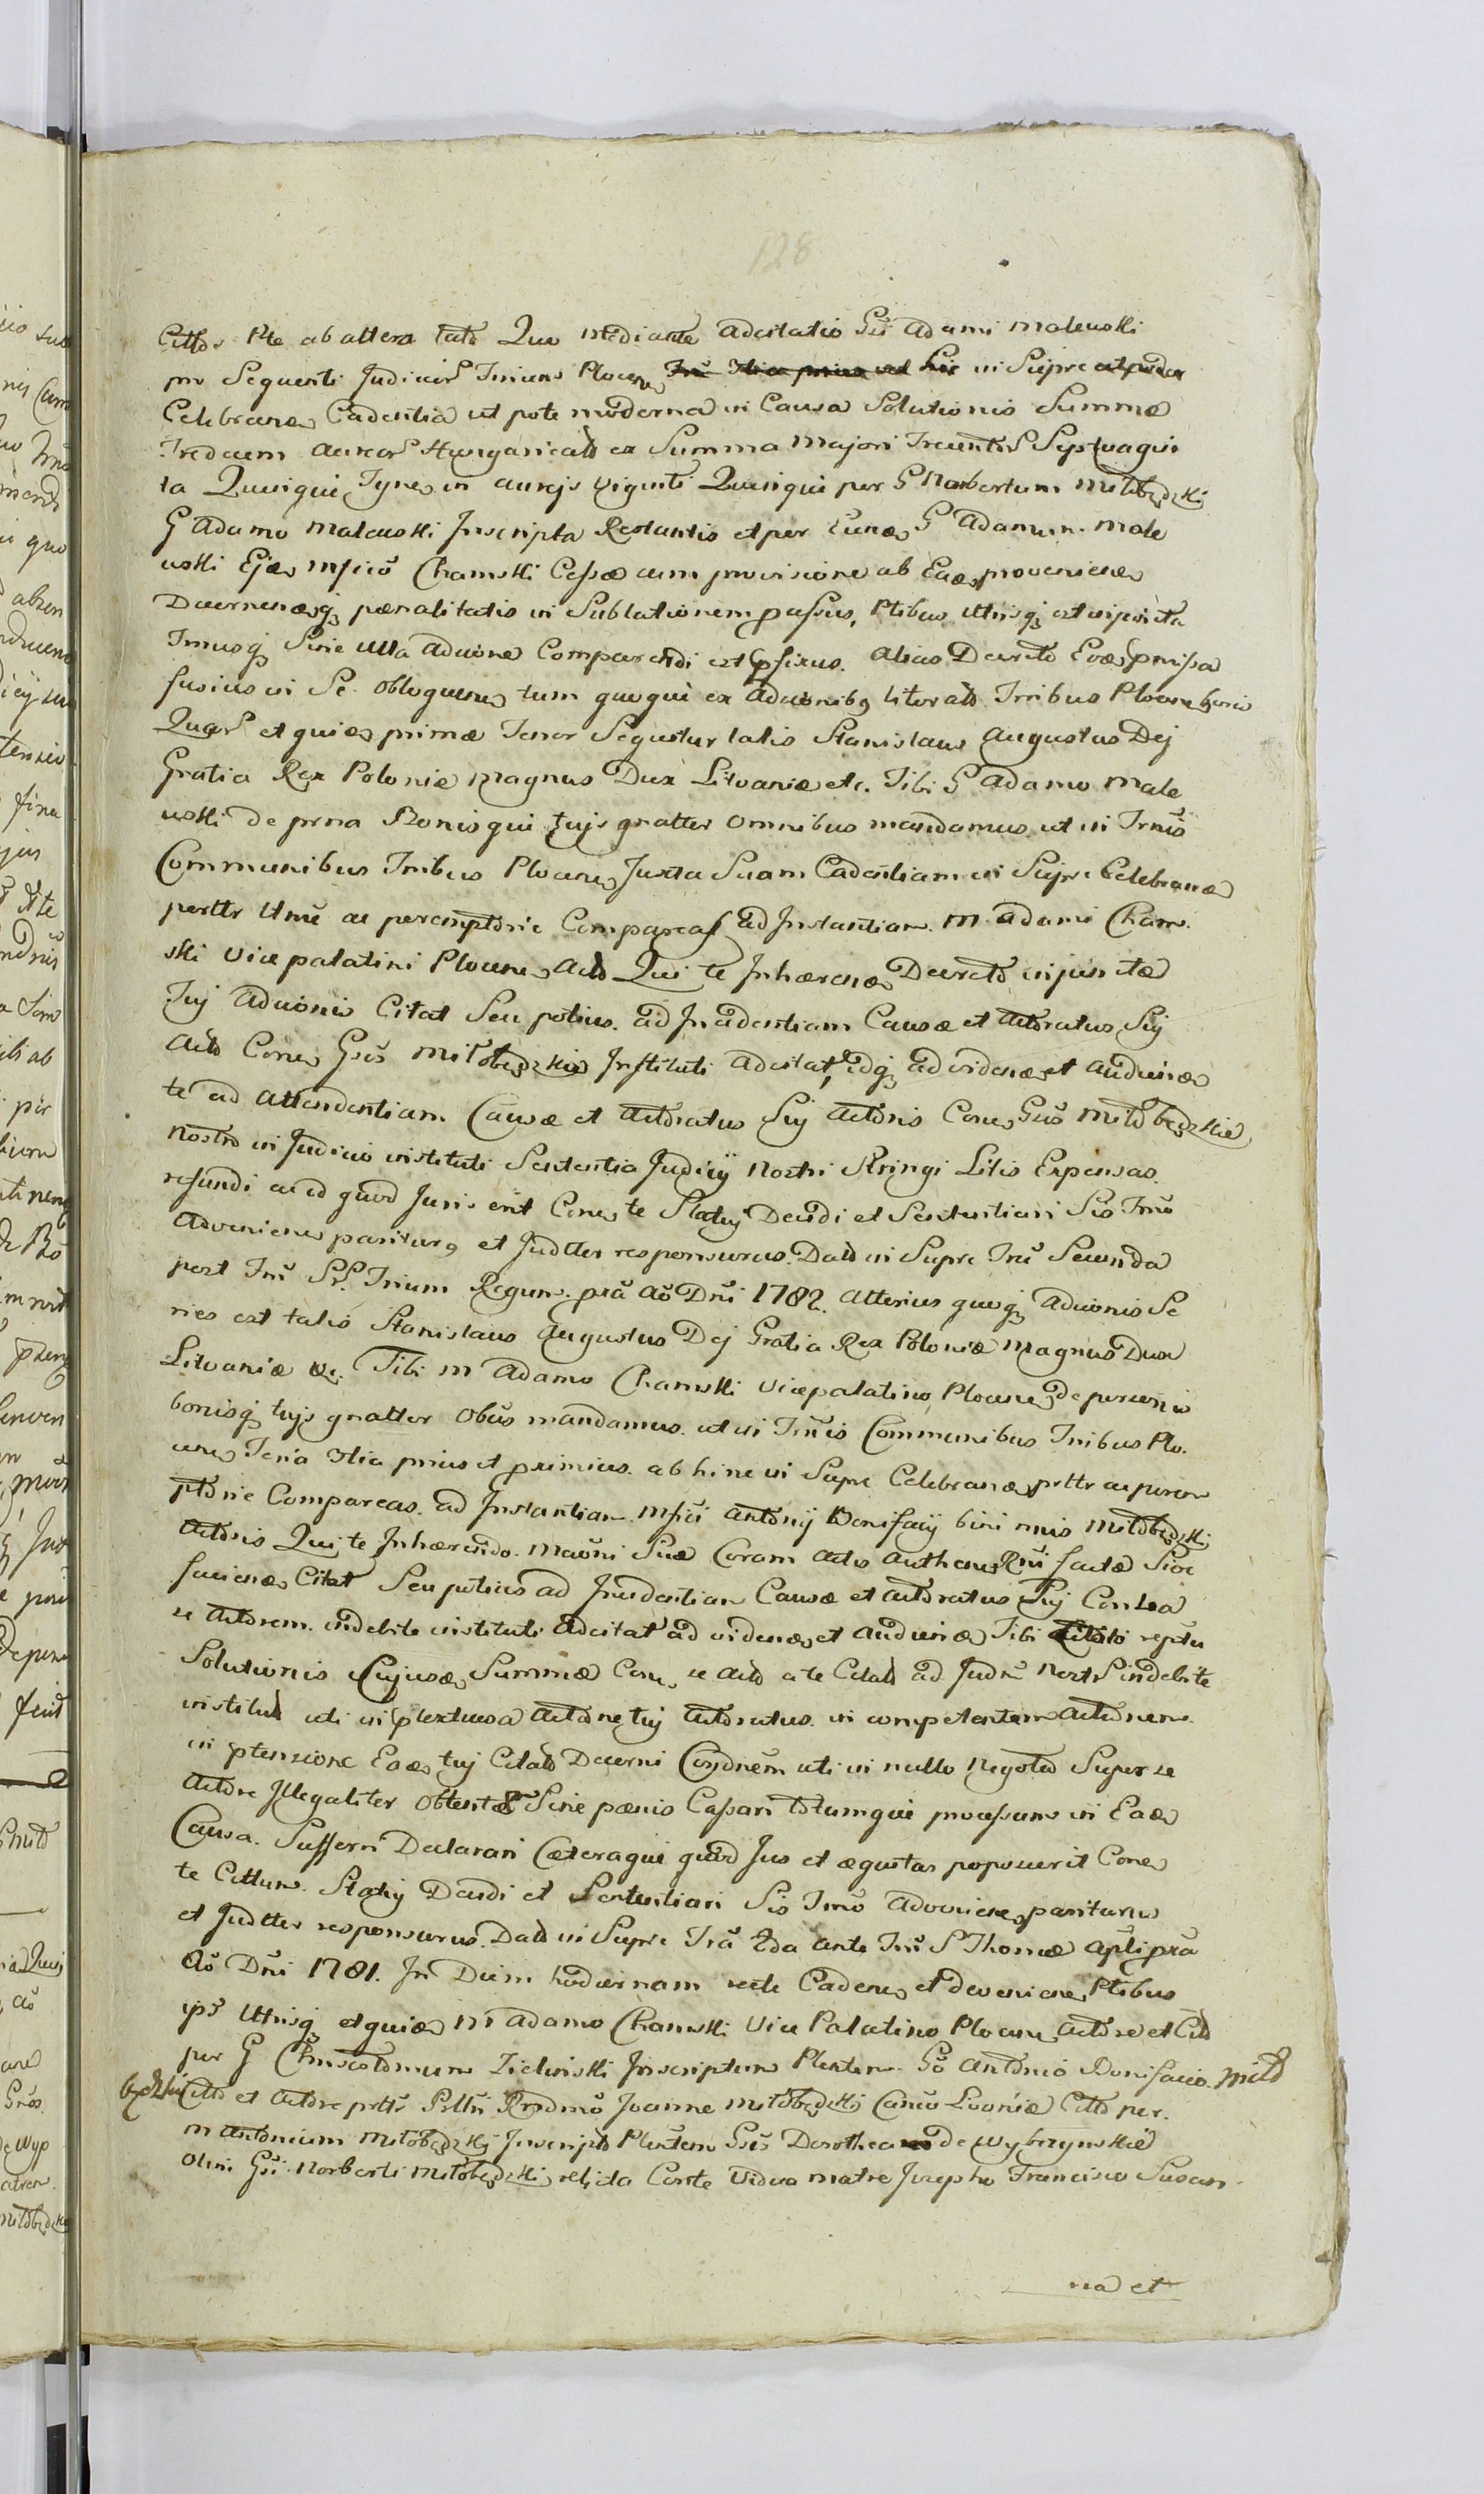 128
Cittos Pte ab altera tato Quo mediante adcitatio Gsi Adami Malewski
pro Sequenti Judicior Trium Plocen in Supre
Celebranda Cadentia ut pote moderna in Causa Solutionis Summæ
Tredecim aureor Hungaricald ex Summa Majori Trecentor Septuagin
ta Quinque Tynf in aureis viginti Quinque per G Norbertum Miłobędzki
G Adamo Malewski Inscripta Restantis et per Eund G Adamum Male
wski Ejd Mfico Chamski Cessæ cum provisione ab Ead provenien
Decernendæq pænalitatis in Sublationem passus, Ptibus Utrisq et injuncta
Imusq Sine Ulla adcione Comparendi est pfixus. alias Decreto Eod præmissa
fusius in Se obloquen, tum quoque ex adcionibq literald Trribus Plocen
Quar et quid primæ Tenor Sequitur talis Stanislaus Augustus Dej
Gratia Rex Poloniæ Magnus Dux Litvaniæ etc. Tibi G Adamo Male
wski de prna Bonisque tujs gnatter Omnibus mandamus ut in Trnis
Communibus Trribus Plocen Juxta Suam Cadentiam in Supre Celebrand
perttr Ume ac peremptorie Compareas ad Instantiam M Adami Cham
ski Vice palatini Plocen acto Qui te Inhæren Decreto injunctæ
Tuj Adcionis Citat Seu potius ad Incidentiam Causæ et actoratus Suj
acto Con Gsis Miłobędzkie Instituti adcitat, idq ad viden et audien
te ad attendentiam Causæ et Actoratus Suj Actoris Con Gsis Miłobędzkie
Nostro in Judicio instituti Sententia Judicij Nostri Stringi Litis Expensas
refundi ac id quod Juris erit Con te Statuj Decidi et Sententiari Sis Trno
advenien pariturq et Judtter responsurus. Dato in Supre Fra Secunda
post Fm SS Trium Regum pxa Ao Dni 1782. alterius quoq Adcionis Se
ries est talis Stanislaus Augustus Dej Gratia Rex Poloniæ Magnus Dux
Litvaniæ etc. Tibi M Adamo Chamski Vicepalatino Plocen de personis
bonisq tujs gnatter Obus mandamus ut in Trnis Communibus Trribus Plo
cen Feria 3tia prius et proximius ab hinc in Supre Celebran prttr ac perem
ptorie Compareas ad Instantiam Mfici Antonij Bonifacij bini nnis Miłobędzki
Actoris Qui te Inhærendo Maoni Suæ Coram Actis Authen Rni factæ Sive
facien Citat Seu potius ad Incidentiam Causæ et actoratus Tuj Contra
se Actorem indebite instituti adcitat ad viden et audien Tibi Citato reptu
Solutionis Cujusd Summæ Con se acto a te Citato ad Judm Nostr indebite
institud uti in plextuosa Actone tuj Actoratus in competentem Actonem
in ptensione Ead tuj Citato Decerni Condnem uti in nullo Negotio Super se
Actore Illegaliter obtent Sine pænis Cassari totumque processum in Ead
Causa Sufferri Declarari Cæteraque quod Jus et æquitas poposcerit Con
te Cittum Statuj Decidi et Sententiari Sis Trno advenien pariturus
et Judtter responsurus. Dato in Supre Fra 2da ante Fm S Thomæ Apli pxa
Ao Dni 1781. In Diem hodiernam recte Caden et devenien Ptibus
ips Utrisq et quid M Adamo Chamski Vice Palatino Plocen Actore et Cito
per G Chrisostomum Zieliński Inscriptum Plenten Go Antonio Bonifacio Miło
będzki Citto et Actore prtti Prttri Rndmo Joanne Miłobędzki Canco Livoniæ Citto per
M Antonium Miłobędzkj Inscripto Plentem Gsis Dorothea de Wybrzynskie
Olim Gsi Norberti Miłobędzki relicta Conte Vidua matre Josepho Francisco Susan
na et